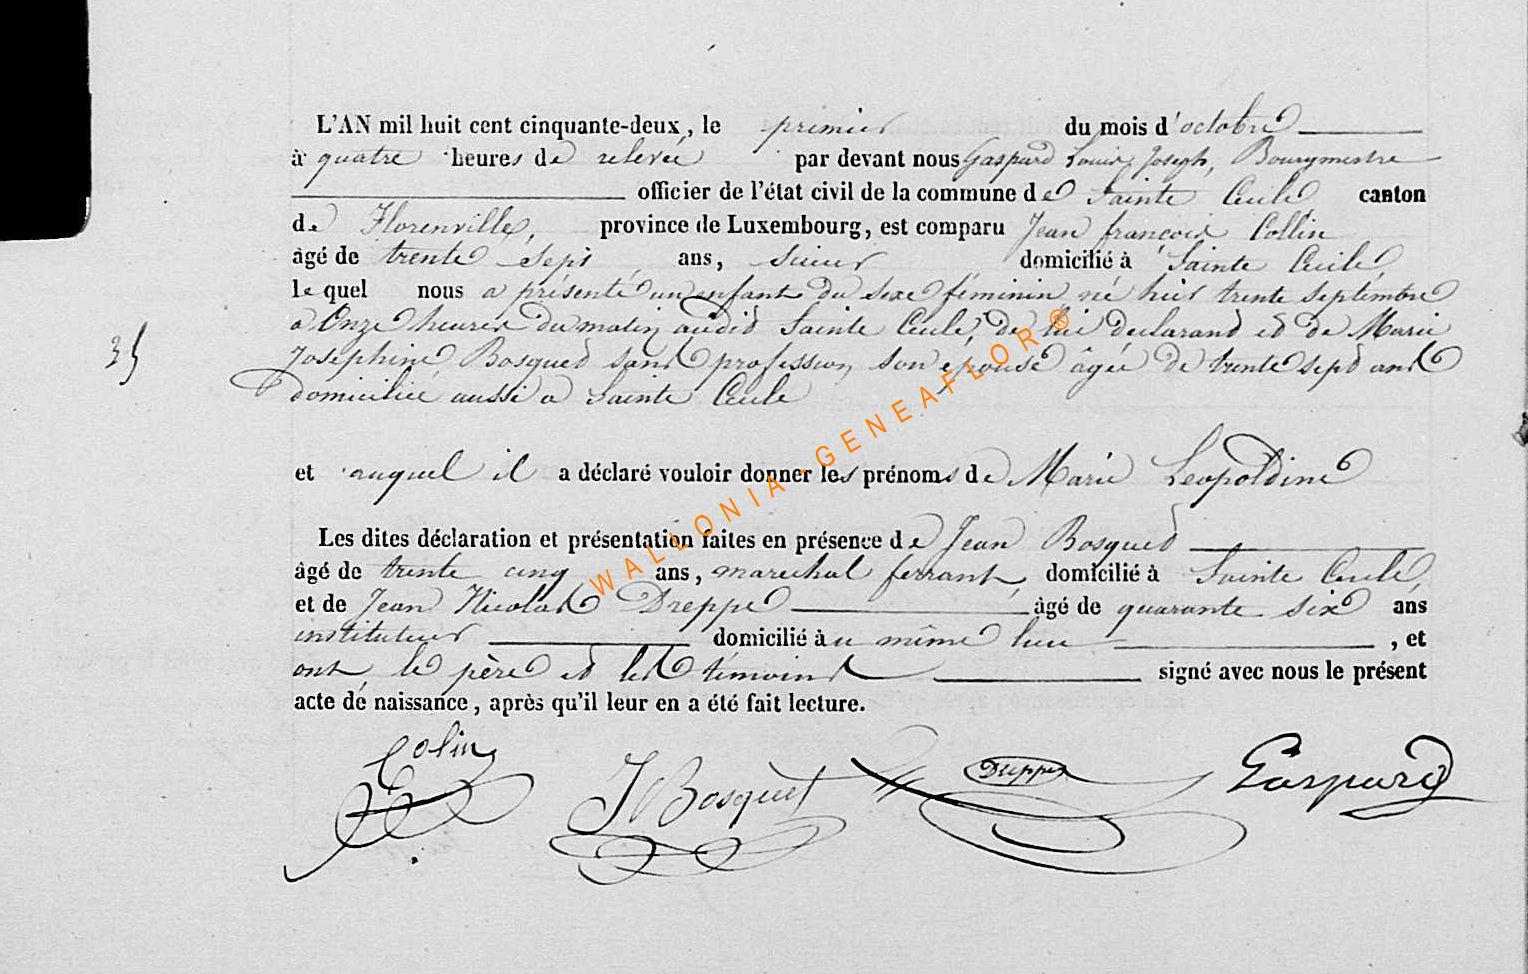 L'AN mil huit cent cinquante-deux, le premier du mois d'octobre
à quatre heures de relevée par devant nous Gaspard Louis Joseph, Bourgmestre
officier de l'état civil de la commune de Sainte Cecile canton
de Florenville, province de Luxembourg, est comparu Jean françois Collin
âgé de trente sept ans, scieur domicilié à Sainte Cecile,
lequel nous a présenté un enfant du sexe féminin, né hier trente septembre
a Onze heures du matin, audit Sainte Cecile, de lui declarant et de Marie
Josephine Bosquet sans profession, son épouse âgée de trente sept ans
domiciliée aussi a Sainte Cecile
35
et auquel il a déclaré vouloir donner les prénoms de Marie Leopoldine
Les dites déclaration et présentation faites en présence de Jean Bosquet
âgé de trente cinq ans, marechal ferrant, domicilié à Sainte Cecile,
et de Jean Nicolas Dreppe âgé de quarante six ans
instituteur domicilié au même lieu, et
ont, le père et les témoins signé avec nous le présent
acte de naissance, après qu'il leur en a été fait lecture.
Colin J Bosquet Dreppe Gaspard
WALLONIA-GENEAFLOR®